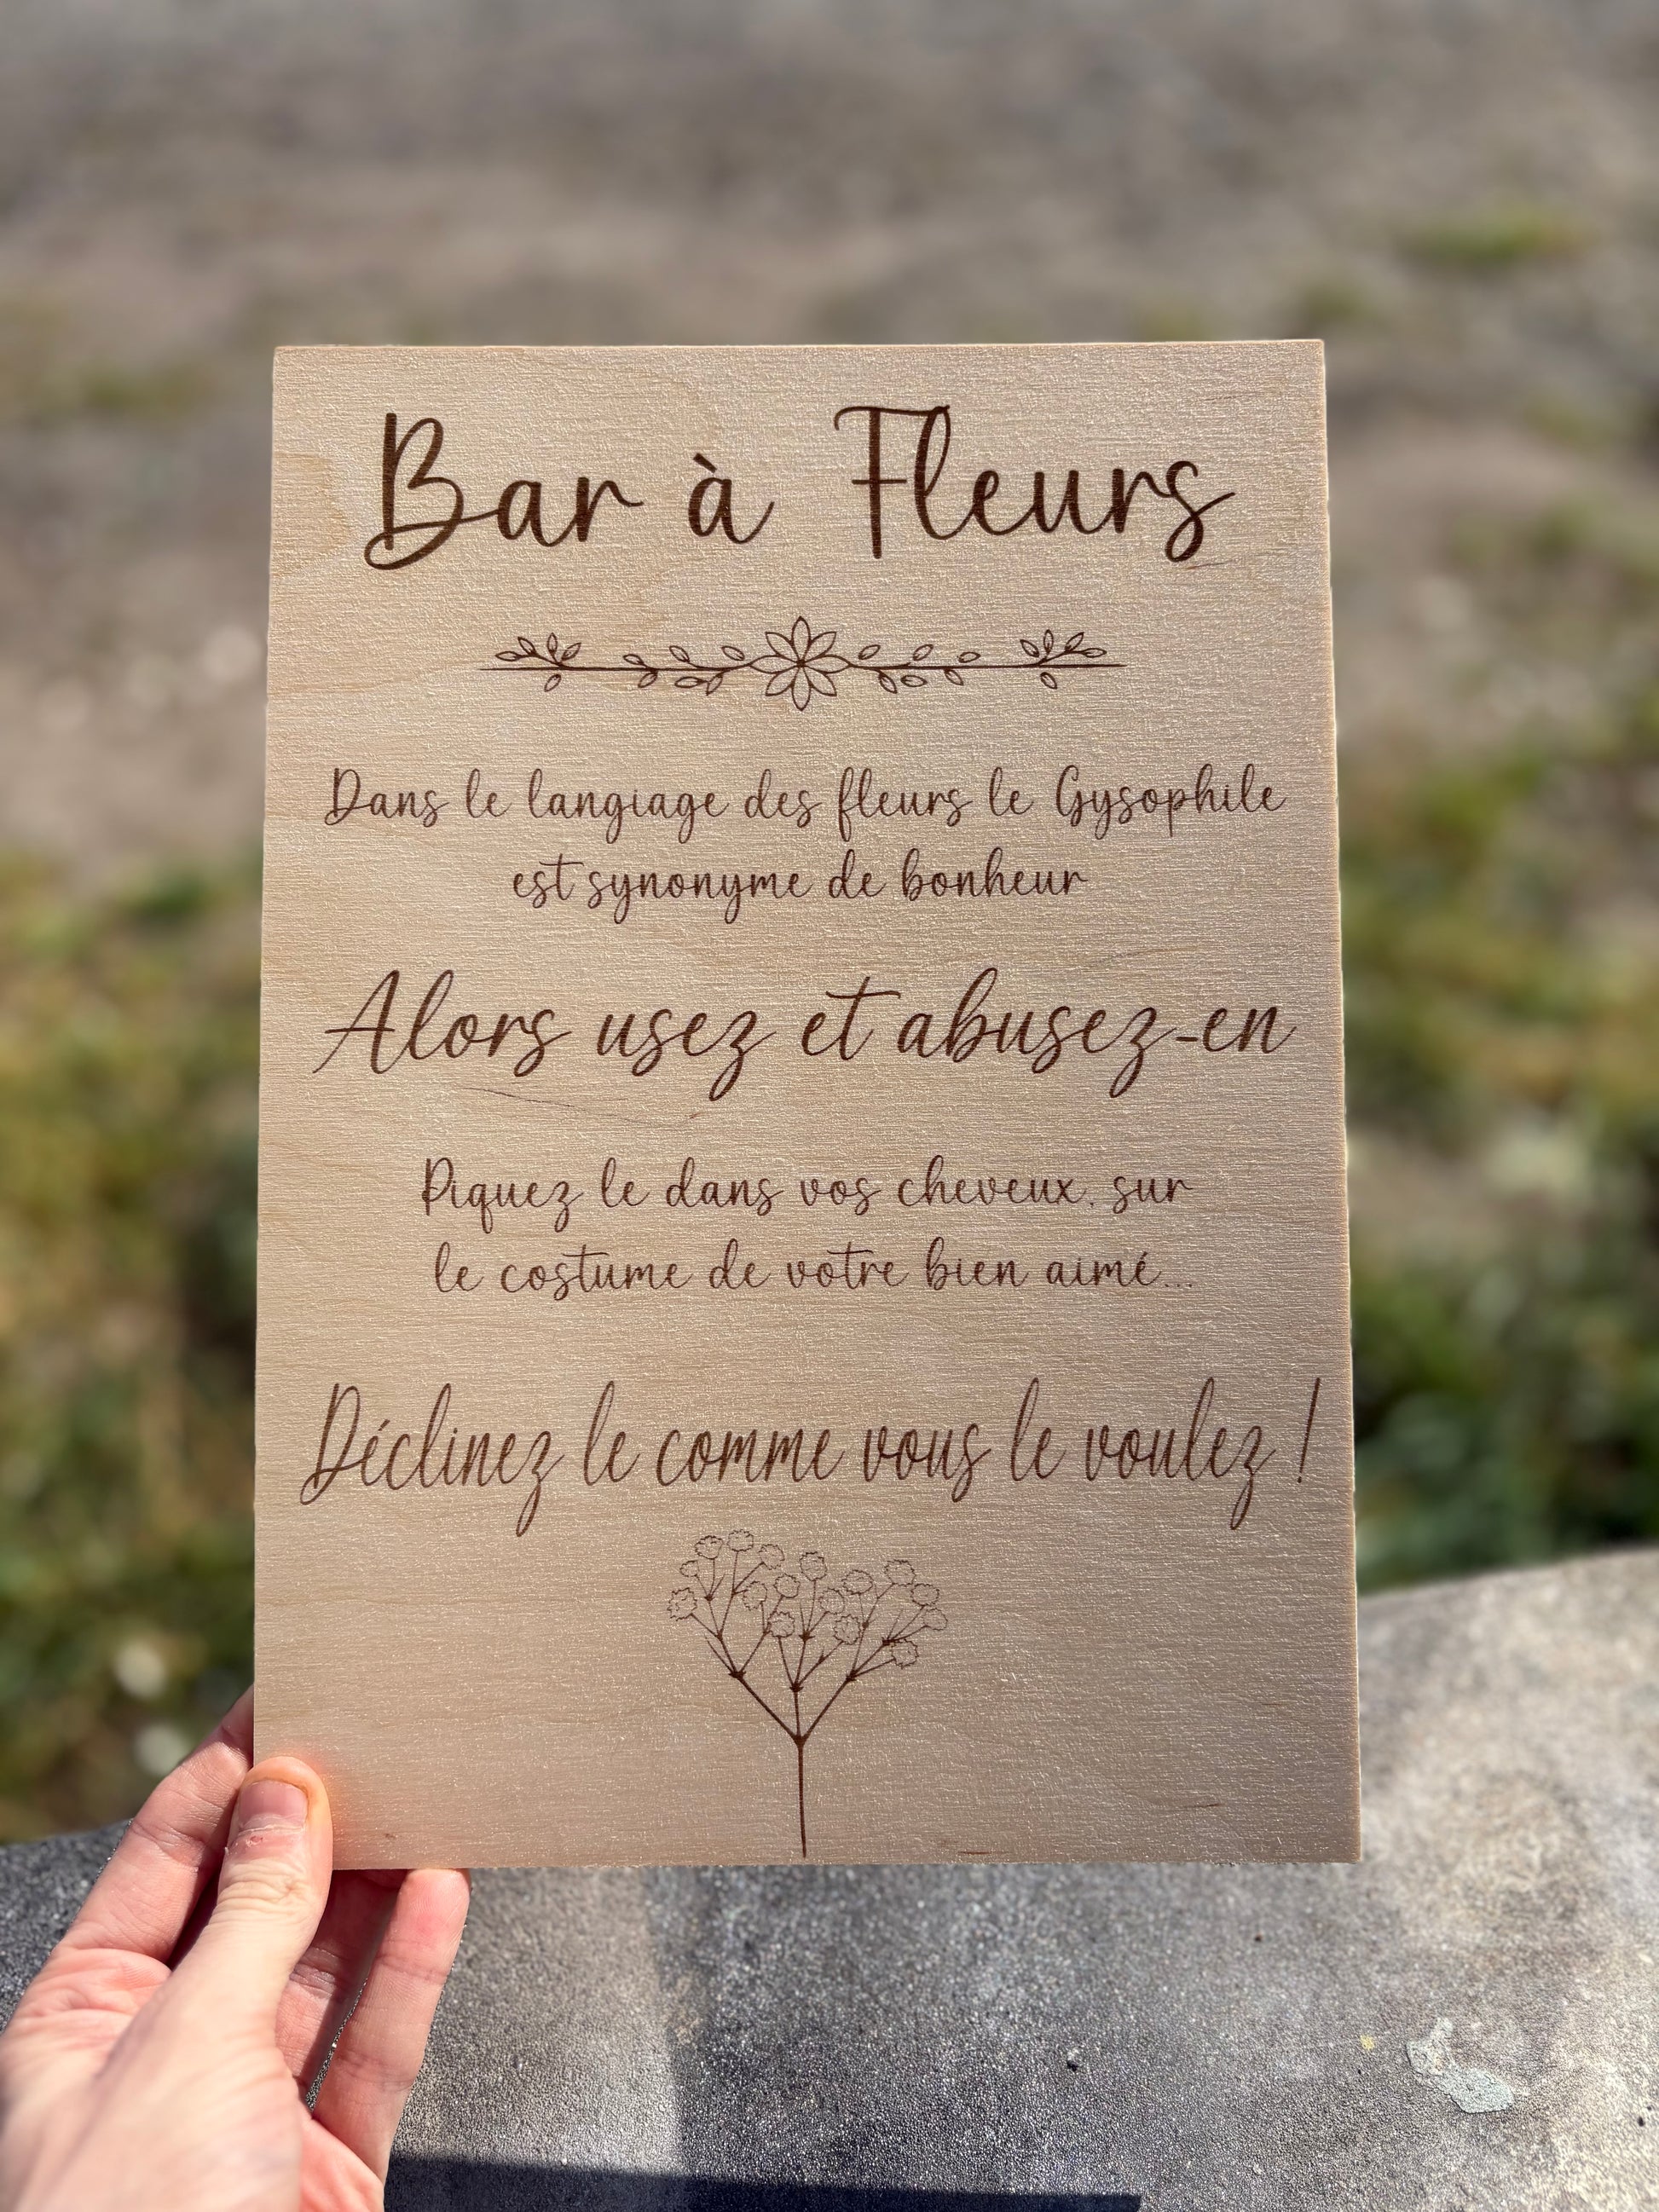 Bar à Fleurs
Dans le langiage des fleurs le Gysophile
est synonyme de bonheur
Alors usez et abusez-en
Piquez le dans vos cheveux, sur
le costume de votre bien aimé...
Déclinez le comme vous le voulez !